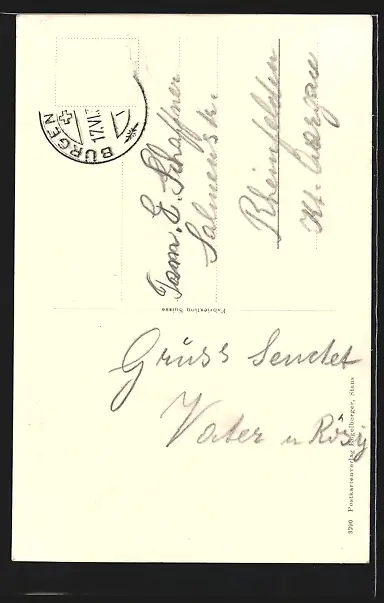 BÜRGEN
17.VI.
Fam. E. Schaffner
Salmenstr.
Rheinfelden
Kt. Aargau
Fabrication Suisse
Grüss sendet
Vater u Rösy
3290 Postkartenverlag Engelberger, Stans